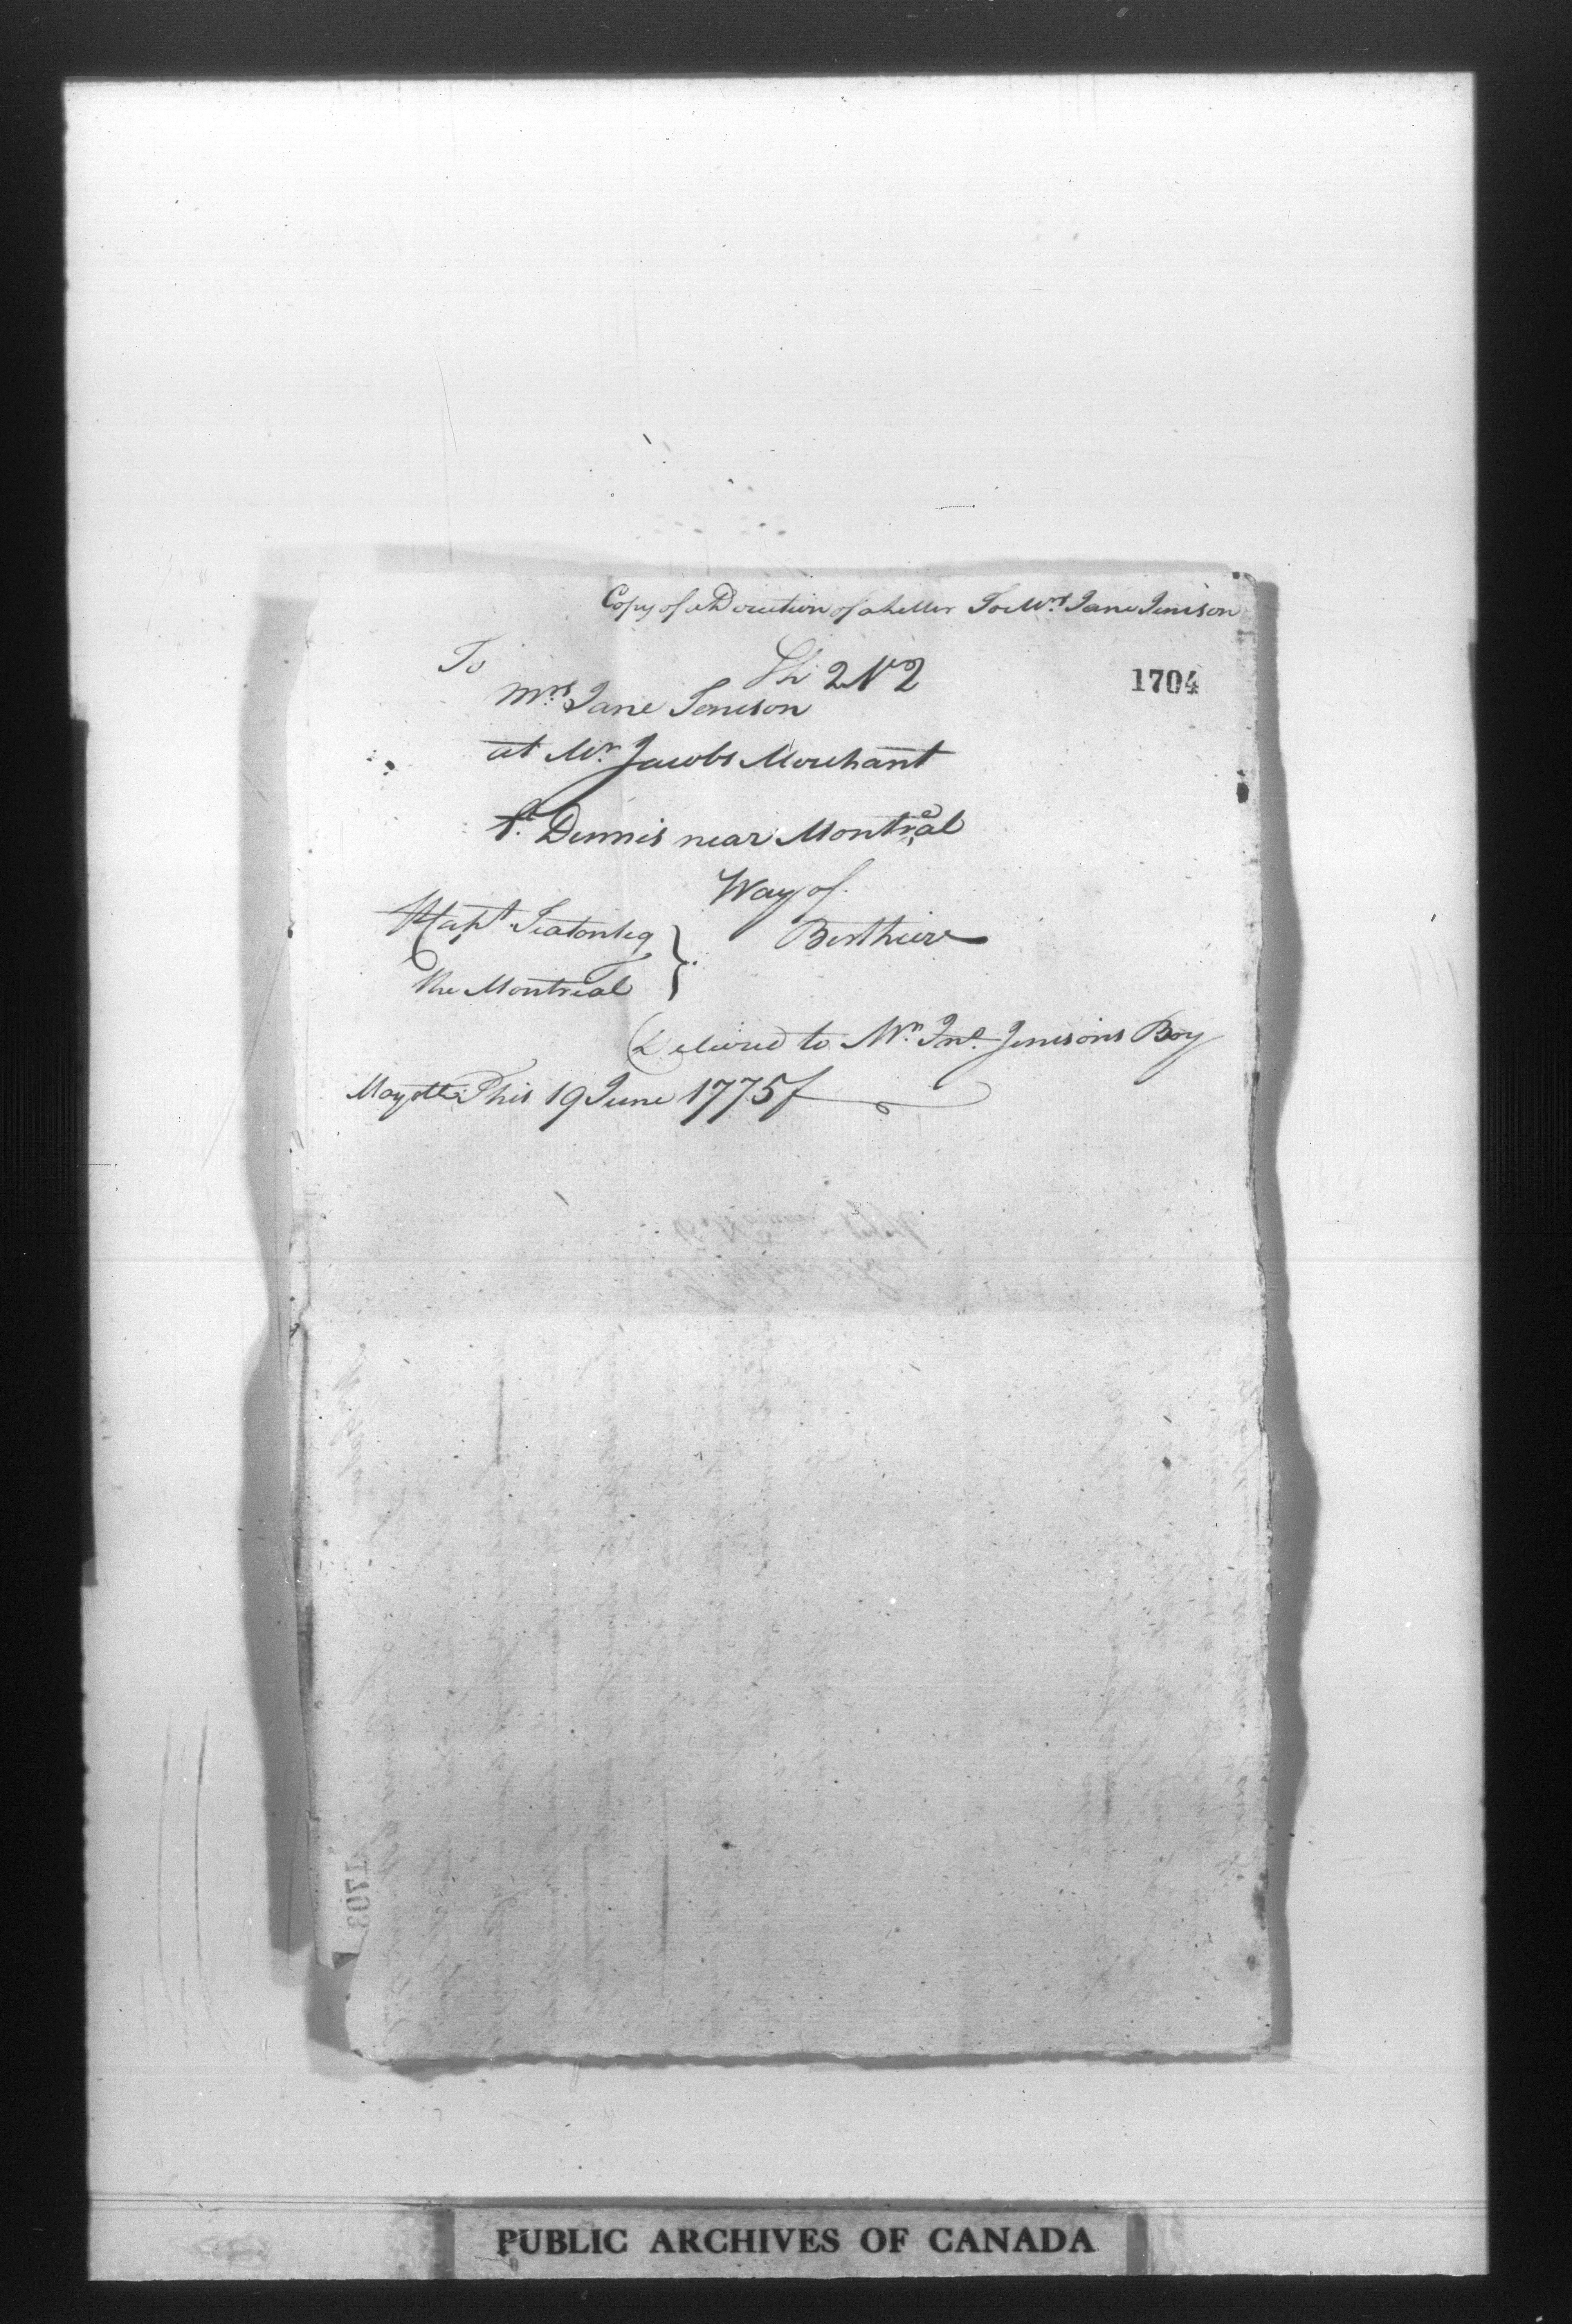 Copy of a Direction of a Letter To Mrs Jane Jenison
To
Sh 2 No 2
1704
Mrs Jane Jenison
at Mr. Jacobs Merchant
St. Dennis near Montreal
Way of
Berthier
Capt Seaton
the Montreal
Delivred to Mr. Jno. Jenisons Boy
Mayotte This 19 June 1775
1703
PUBLIC ARCHIVES OF CANADA